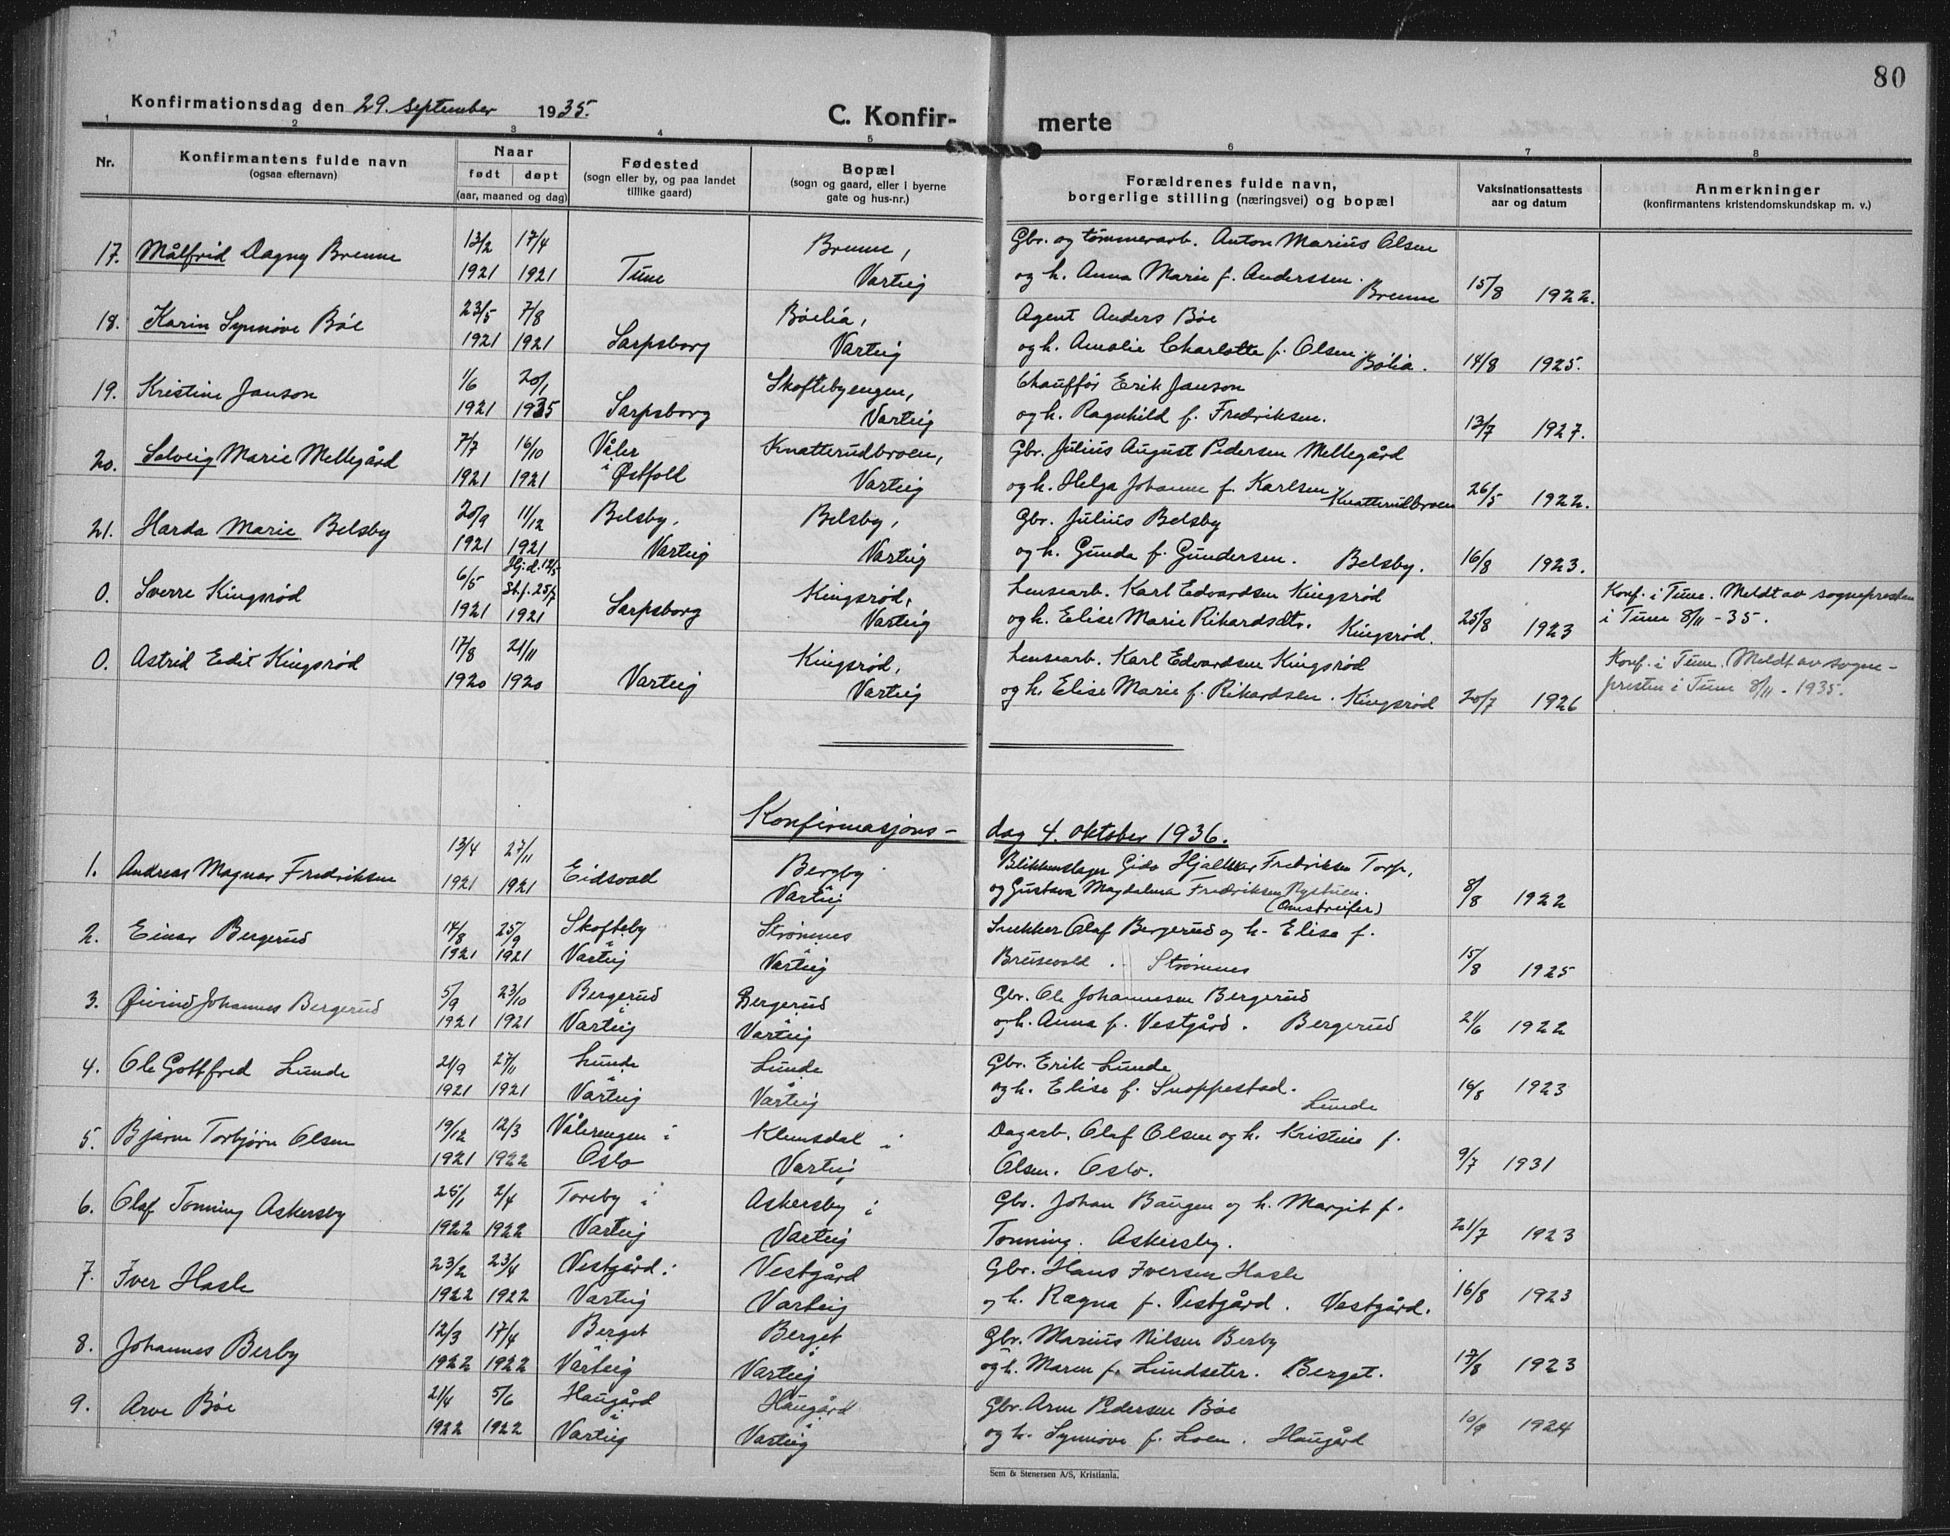 80
Konfirmationsdag den 29. september 1935.
C. Konfir- merte
1 2 3 4 5 6 7 8
Nr.
Konfirmantens fulde navn
(ogsaa efternavn)
Naar
født døpt
(aar, maaned og dag)
Fødested
(sogn eller by, og paa landet
tillike gaard)
Bopæl
(sogn og gaard, eller i byerne
gate og hus-nr.)
Forældrenes fulde navn,
borgerlige stilling (næringsvei) og bopæl
Vaksinationsattests
aar og datum
Anmerkninger
(konfirmantens kristendomskundskap m. v.)
17. Målfrid Dagny Brenne 13/2 17/4 Brenne, Gbr. og tømmerarb. Anton Marius Olsen
1921 1921 Tune Varteig og h. Anna Marie f. Anderssen. Brenne 15/8 1922.
18. Karin Synnøve Bøe 23/5 7/8 Bøelia, Agent Anders Bøe
1921 1921 Sarpsborg Varteig og h. Amalie Charlotte f. Olsen Bölia. 14/8 1925.
19. Kristine Janson 1/6 20/1 Skoftebyengen, Chauffør Erik Janson
1921 1935 Sarpsborg Varteig og h. Ragnhild f. Fredriksen. 13/7 1927.
20. Solveig Marie Mellegård 7/7 16/10 Våler Knatterudbroen, Gbr. Julius August Pedersen Mellegård
1921 1921 i Østfold Varteig og h. Helga Johanne f. Karlsen Knatterudbroen 26/5 1922.
21. Harda Marie Belsby 20/9 11/12 Belsby, Belsby, Gbr. Julius Belsby
1921 1921 Varteig Varteig og h. Gunda f. Gundersen. Belsby. 16/8 1923.
0. Sverre Kingsrød 6/5 Hj.d. 12/5 Stf. 25/7 Kingsrød, Lensearb. Karl Edvardsen Kingsrød Konf. i Tune. Meldt av sognepresten
1921 1921 Sarpsborg Varteig og h. Elise Marie Rikardsdtr. Kingsrød. 25/8 1923 i Tune 8/11 - 35.
0. Astrid Edit Kingsrød 17/8 21/11 Kingsrød, Lensearb. Karl Edvardsen Kingsrød Konf. i Tune. Meldt av sogne-
1920 1920 Varteig Varteig og h. Elise Marie f. Rikardsen. Kingsrød 20/7 1926 presten i Tune 8/11 - 1935.
Konfirmasjons- dag 4. oktober 1936.
1. Andreas Magnar Fredriksen 13/4 27/11 Eidsvold Bergby Blikkenslager Hjalmar Fredriksen Torp,
1921 1921 Varteig og Gustava Magdalena Fredriksen Nystuen. (Omstreifer) 8/8 1922
2. Einar Bergerud 14/8 25/9 Skofteby Strømnes Snekker Olaf Bergerud og h. Elise f.
1921 1921 Varteig Varteig Brusevold. Strømnes 15/8 1925
3. Øivind Johannes Bergerud 5/9 23/10 Bergerud Bergerud Gbr. Ole Johannesen Bergerud
1921 1921 Varteig Varteig og h. Anna f. Vestgård. Bergerud 21/6 1922
4. Ole Gottfred Lunde 21/9 27/11 Lunde Lunde Gbr. Erik Lunde
1921 1921 Varteig Varteig og h. Elise f. Snoppestad. Lunde 16/8 1923
5. Bjarne Torbjørn Olsen 19/12 12/3 Vålerengen i Klunsdal i Dagarb. Olaf Olsen og h. Kristine f.
1921 1922 Oslo Varteig Olsen. Oslo. 9/7 1931
6. Olaf Tonning Askersby 25/1 2/4 Toreby i Askersby i Gbr. Johan Baugen og h. Margit f.
1922 1922 Varteig Varteig Tonning. Askersby. 21/7 1923
7. Iver Hasle 23/2 23/4 Vestgård i Vestgård Gbr. Hans Iversen Hasle
1922 1922 Varteig Varteig og h. Ragna f. Vestgård. Vestgård. 16/8 1923
8. Johannes Berby 12/3 17/4 Berget Berget Gbr. Marius Nilsen Berby
1922 1922 Varteig Varteig og h. Maren f. Lundseter. Berget. 17/8 1923
9. Arve Bøe 21/4 5/6 Haugård Haugård Gbr. Arne Pedersen Bøe
1922 1922 Varteig Varteig og h. Synnøve f. Loen. Haugård 10/9 1924
Sem & Stenersen A/S, Kristiania.